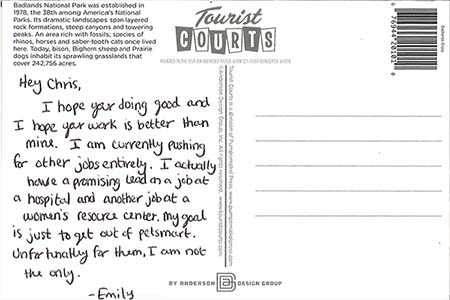 Badlands National Park was established in
1978, the 38th among America's National
Parks. Its dramatic landscapes span layered
rock formations, steep canyons and towering
peaks. An area rich with fossils; species of
rhinos, horses and saber-tooth cats once lived
here. Today, bison, Bighorn sheep and Prairie
dogs inhabit its sprawling grasslands that
cover 242,756 acres.
Hey Chris,
I hope your doing good and
I hope your work is better than
mine. I am currently pushing
for other jobs entirely. I actually
have a promising lead on a job at
a hospital and another job at a
women's resource center. My goal
is just to get out of petsmart.
Unfortunatly for them, I am not
the only.
-Emily
Tourist
COURTS
Tourist Courts is a division of Pumpernickel Press. www.pumpernickelpress.com
©Anderson Design Group, Inc. All rights reserved. www.touristcourts.com
BY ANDERSON DESIGN GROUP
6 76944 20101 6
Badlands Bison